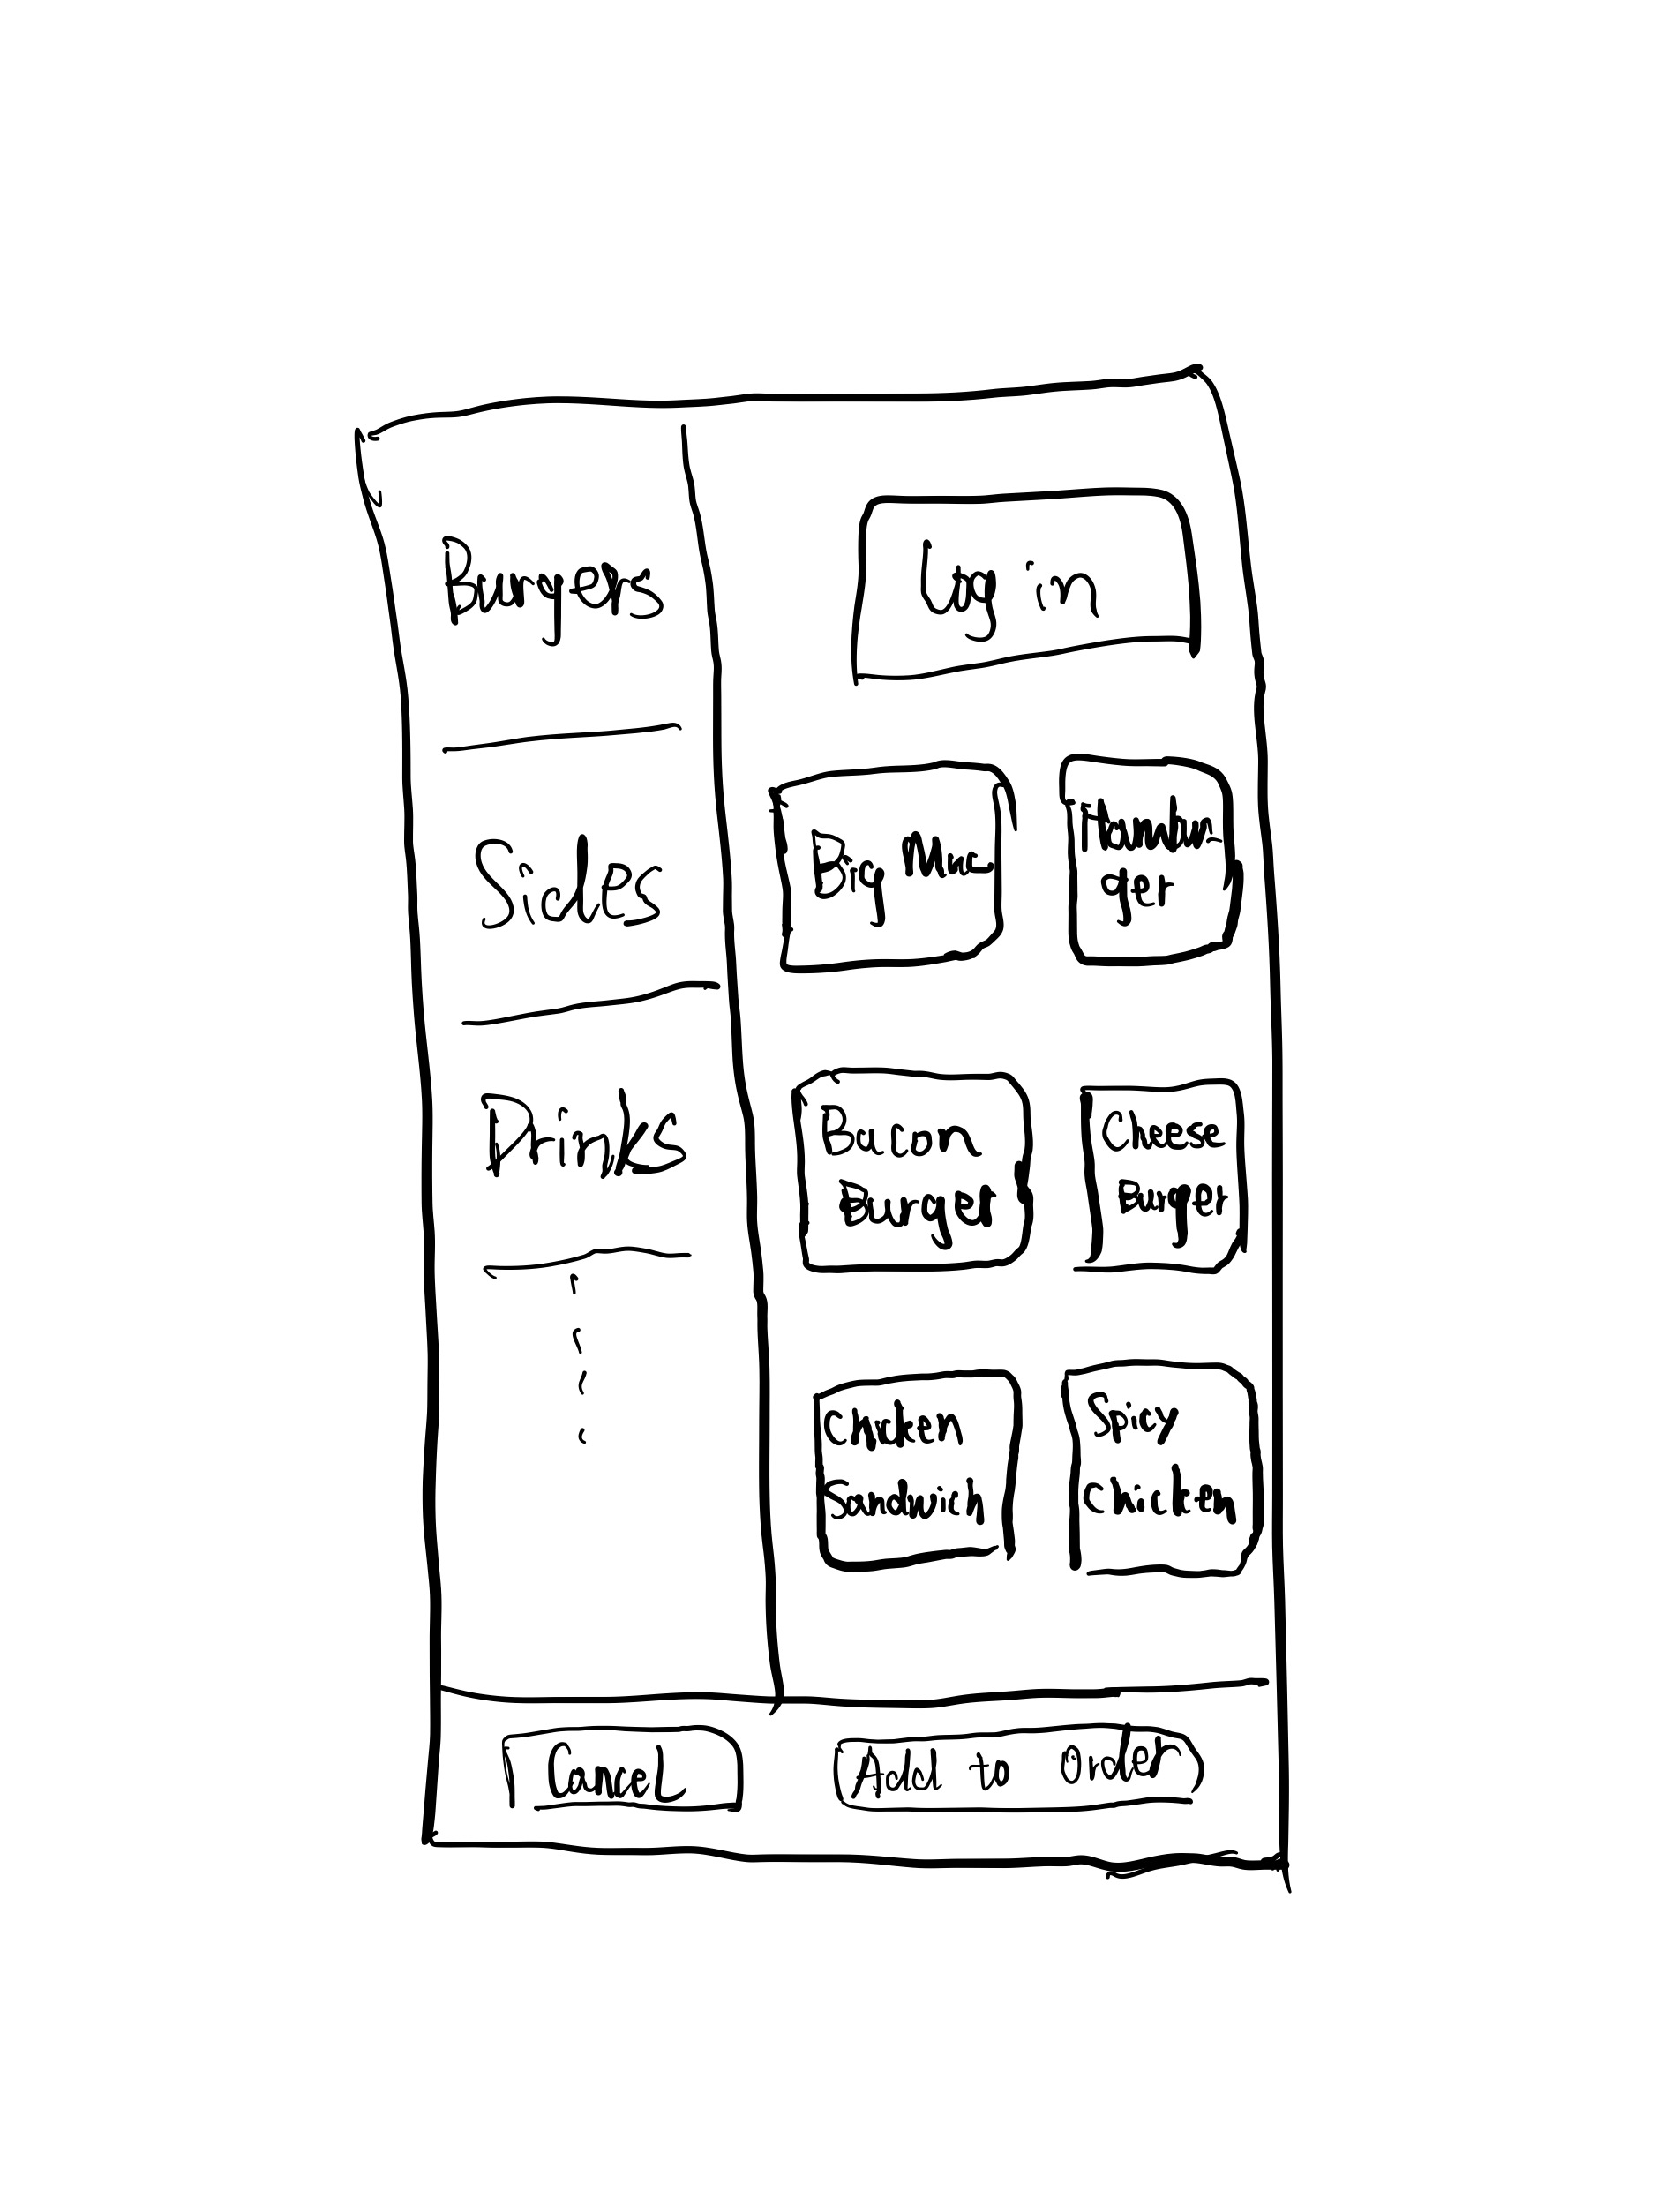 Burgers
Sides
Drinks
Log in
Big Mac
Hambur-
ger
Bacon
Burger
Cheese
Burger
Chicken
Sandwich
Spicy
Chicken
Cancel
Add to Order